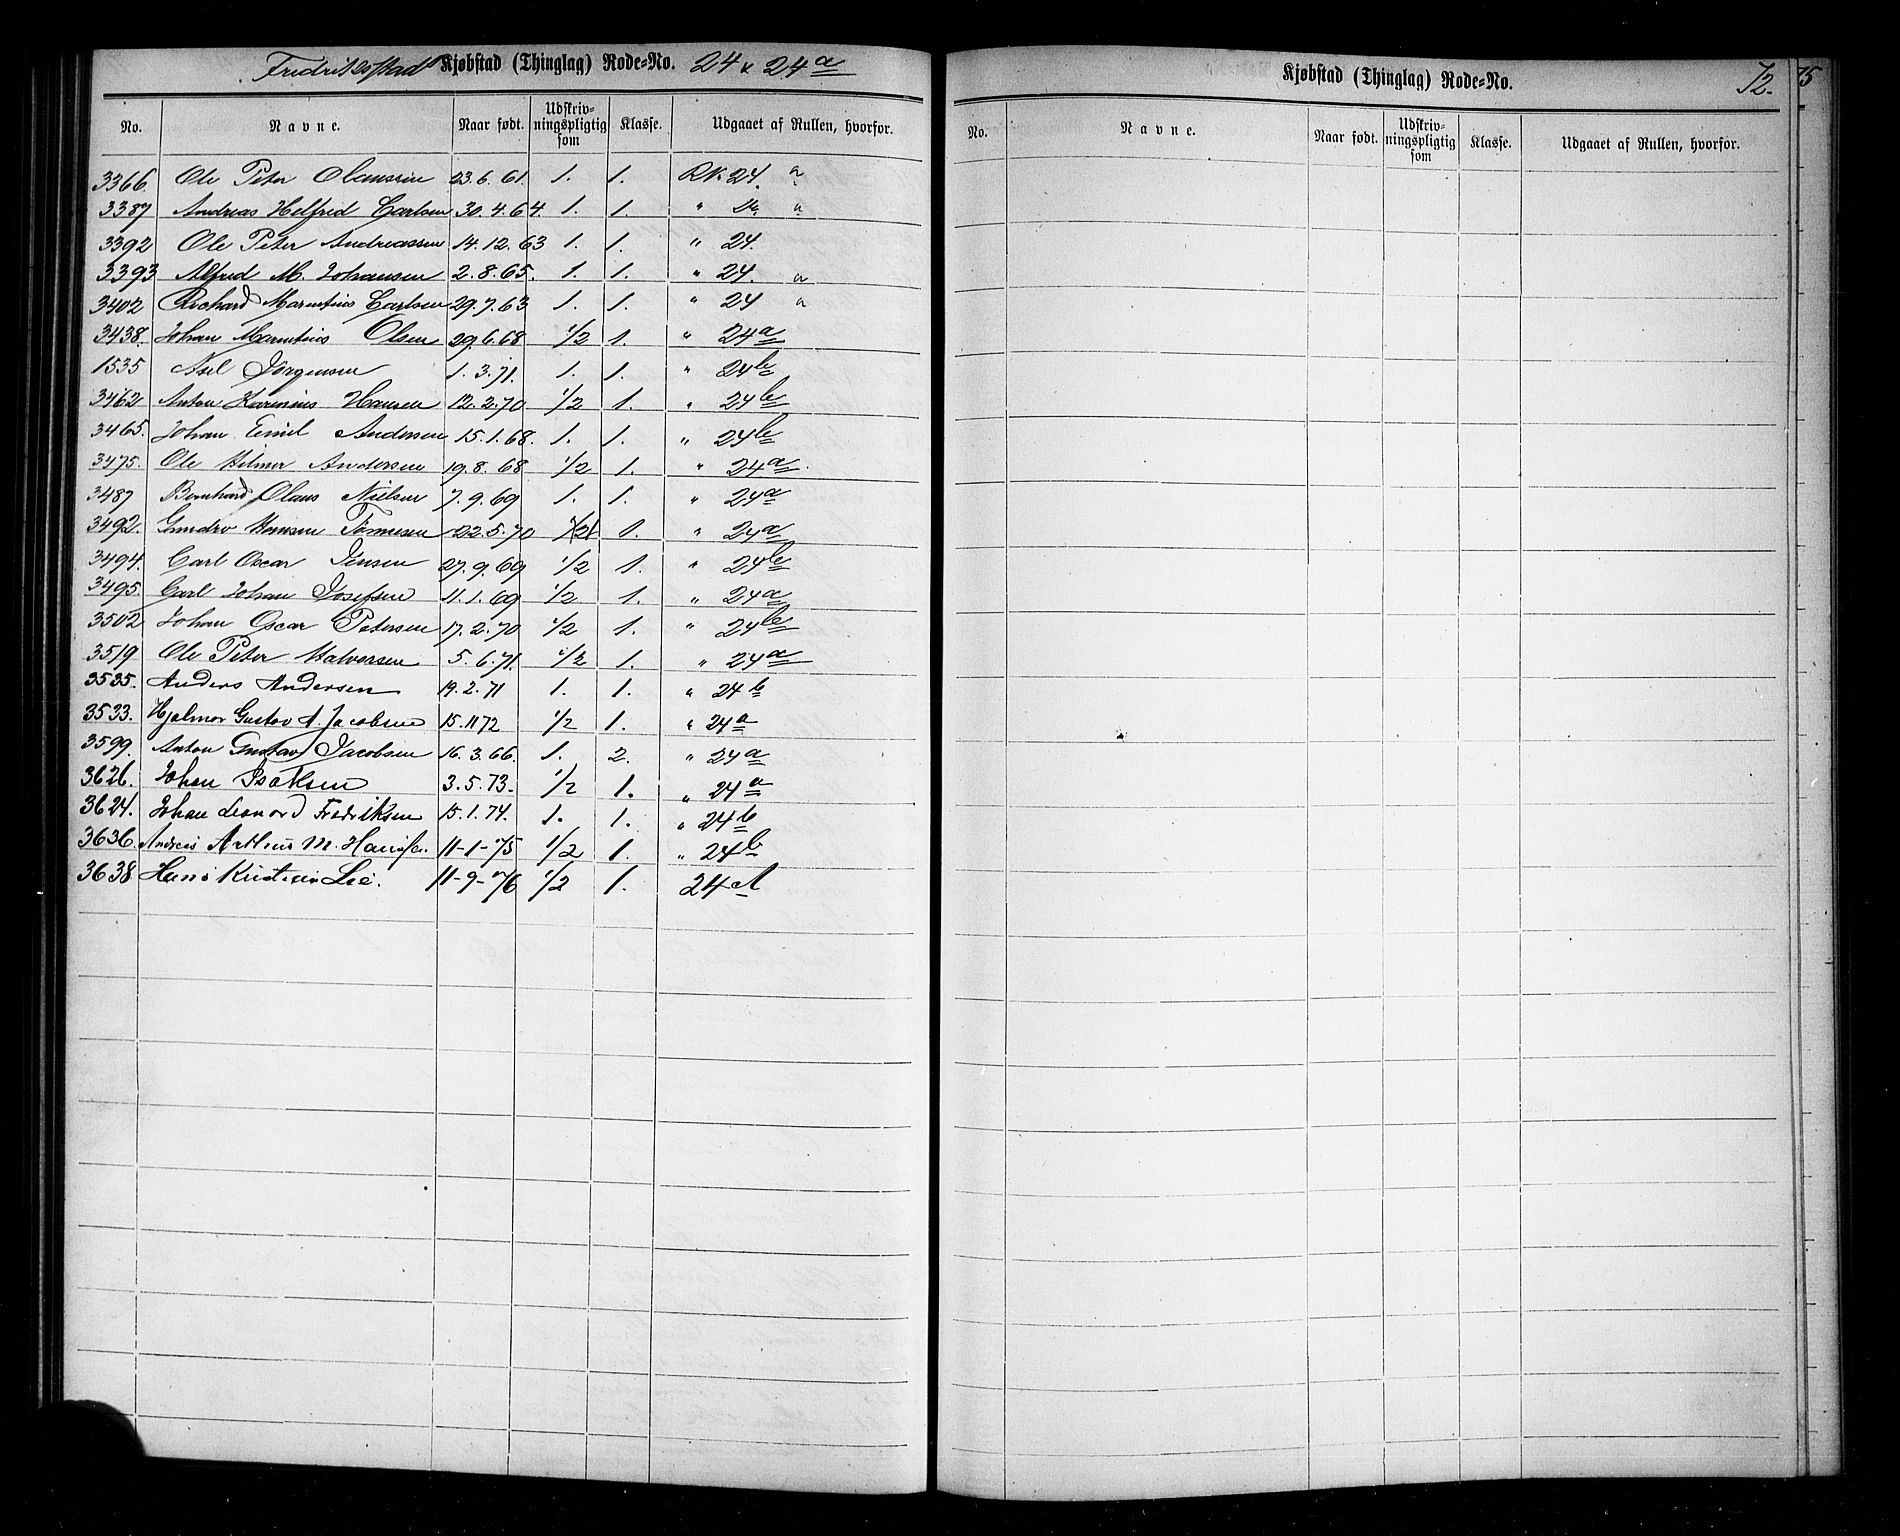 Fredriksstad Kjøbstad (Thinglag) Rode=No. 24 & 24 a
No. Navne. Naar født. Udskriv-ningspligtig som Klasse. Udgaaet af Rullen, hvorfor.
3366. Ole Peter Olaussen 23.6.61. 1. 1. RN 24. a
3387 Andreas Helfred Carlsen 30.4.64. 1. 1. " a
3392 Ole Peter Andreassen 14.12.63 1. 1. " 24.
3393 Alfred M. Johansen 2.8.65. 1. 1. " 24. a
3402 Richard Marentius Carlsen 29.7.63 1. 1. " 24 a
3438. Johan Marentius Olsen 29.6.68 1/2 1. " 24a
1535 Axel Jørgensen 1.3.71. 1. 1. " 24b
3462 Anton Karenius Hansen 12.2.70 1/2 1. " 24b
3465. Johan Emil Andersen 15.1.68. 1. 1. " 24b
3475. Ole Hilmer Andersen 19.8.68 1/2 1. " 24a.
3487 Bernhard Olaus Nielsen 7.9.69 1. 1. " 24a
3492. Hansen 22.5.70 1/2 1. " 24a
3494. Carl Oscar Jensen 27.9.69 1/2 1. " 24b
3495. Carl Johan Josefsen 11.1.69 1/2 1. " 24a
3502 Johan Oscar Petersen 17.2.70 1/2 1. " 24b
3519 Ole Peter Halvorsen 5.6.71. 1/2 1. " 24a
3535. Anders Andersen 19.2.71 1. 1. " 24b
3533. Hjalmar Gustav A. Jacobsen 15.11 72 1/2 1. " 24a
3599. Anton Gustav Jacobsen 16.3.66. 1. 2. " 24a
3626. Johan Isaksen 3.5.73. 1/2 1. " 24a
3624. Johan Leonard Fredriksen 15.1.74. 1. 1. " 24b
3636. Andreas Arthur M. Hansen. 11-1-75 1/2 1. " 24b
3638 Hans Kristian Lie. 11-9-76 1/2 1. 24 A
Kjøbstad (Thinglag) Rode=No. 72. 75
No. Navne. Naar født. Udskriv-ningspligtig som Klasse. Udgaaet af Rullen, hvorfor.